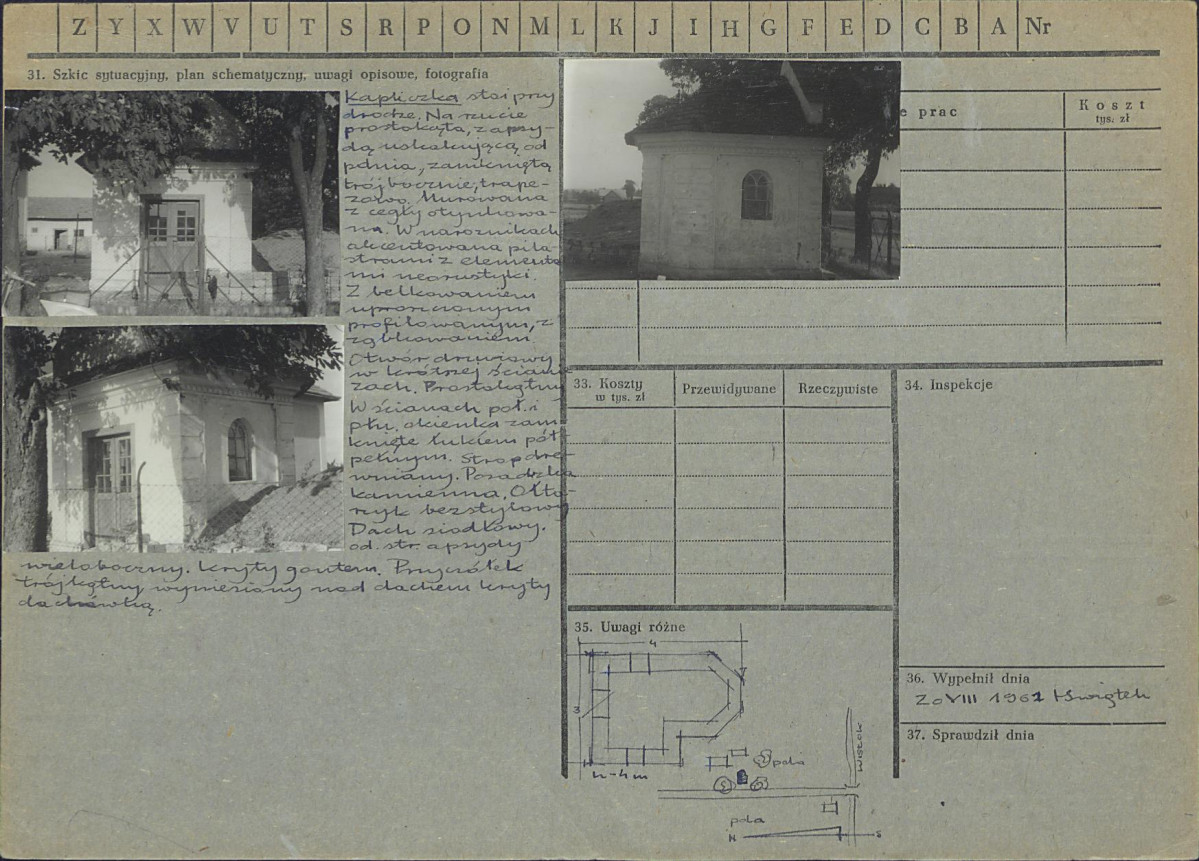 Z Y X W V U T S R P O N M L K J I H G F E D C B A Nr
31. Szkic sytuacyjny, plan schematyczny, uwagi opisowe, fotografia
Kapliczka stoi przy
drodze. Na rzucie
prostokąta, z apsy-
dą uskakującą od
pdnia, zamkniętą
trójbocznie, trape-
zowo. Murowana
z cegły otynkowa-
na. W narożnikach
akcentowana pila-
strami z elementa
mi neorustyki.
Z belkowaniem
uproszczonym
profilowanym, z
ząbkowaniem
Otwór drzwiowy
w krótszej ściani
zach. Prostokątny
W ścianach poł. i
płn. okienka zam
knięte łukiem pół
pełnym. Strop dre-
wniany. Posadzka
kamienna, Ołta-
rzyk bezstylowy
Dach siodłowy.
od str. apsydy
wieloboczny. kryty gontem. Przyczółek
trójkątny wyniesiony nad dachem kryty
dachówką.
e prac
Koszt
tys. zł
33. Koszty
w tys. zł
Przewidywane
Rzeczywiste
34. Inspekcje
35. Uwagi różne
4
3
h-4m
pola
pola
N
S
36. Wypełnił dnia
20 VIII 1961 HŚwiątek
37. Sprawdził dnia